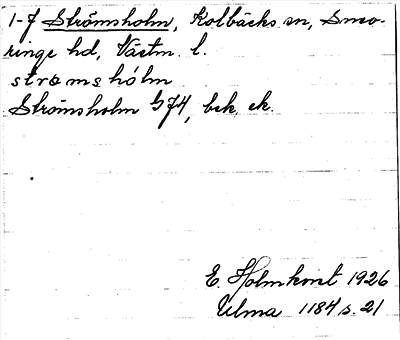 1-7 Strömsholm, Kolbäcks sn, Snev-
ringe hd, Västm. l.
strǝmshólm
Strömsholm 574, bek. ek.
E. Holmkvist 1926
Ulma 1184 s. 21